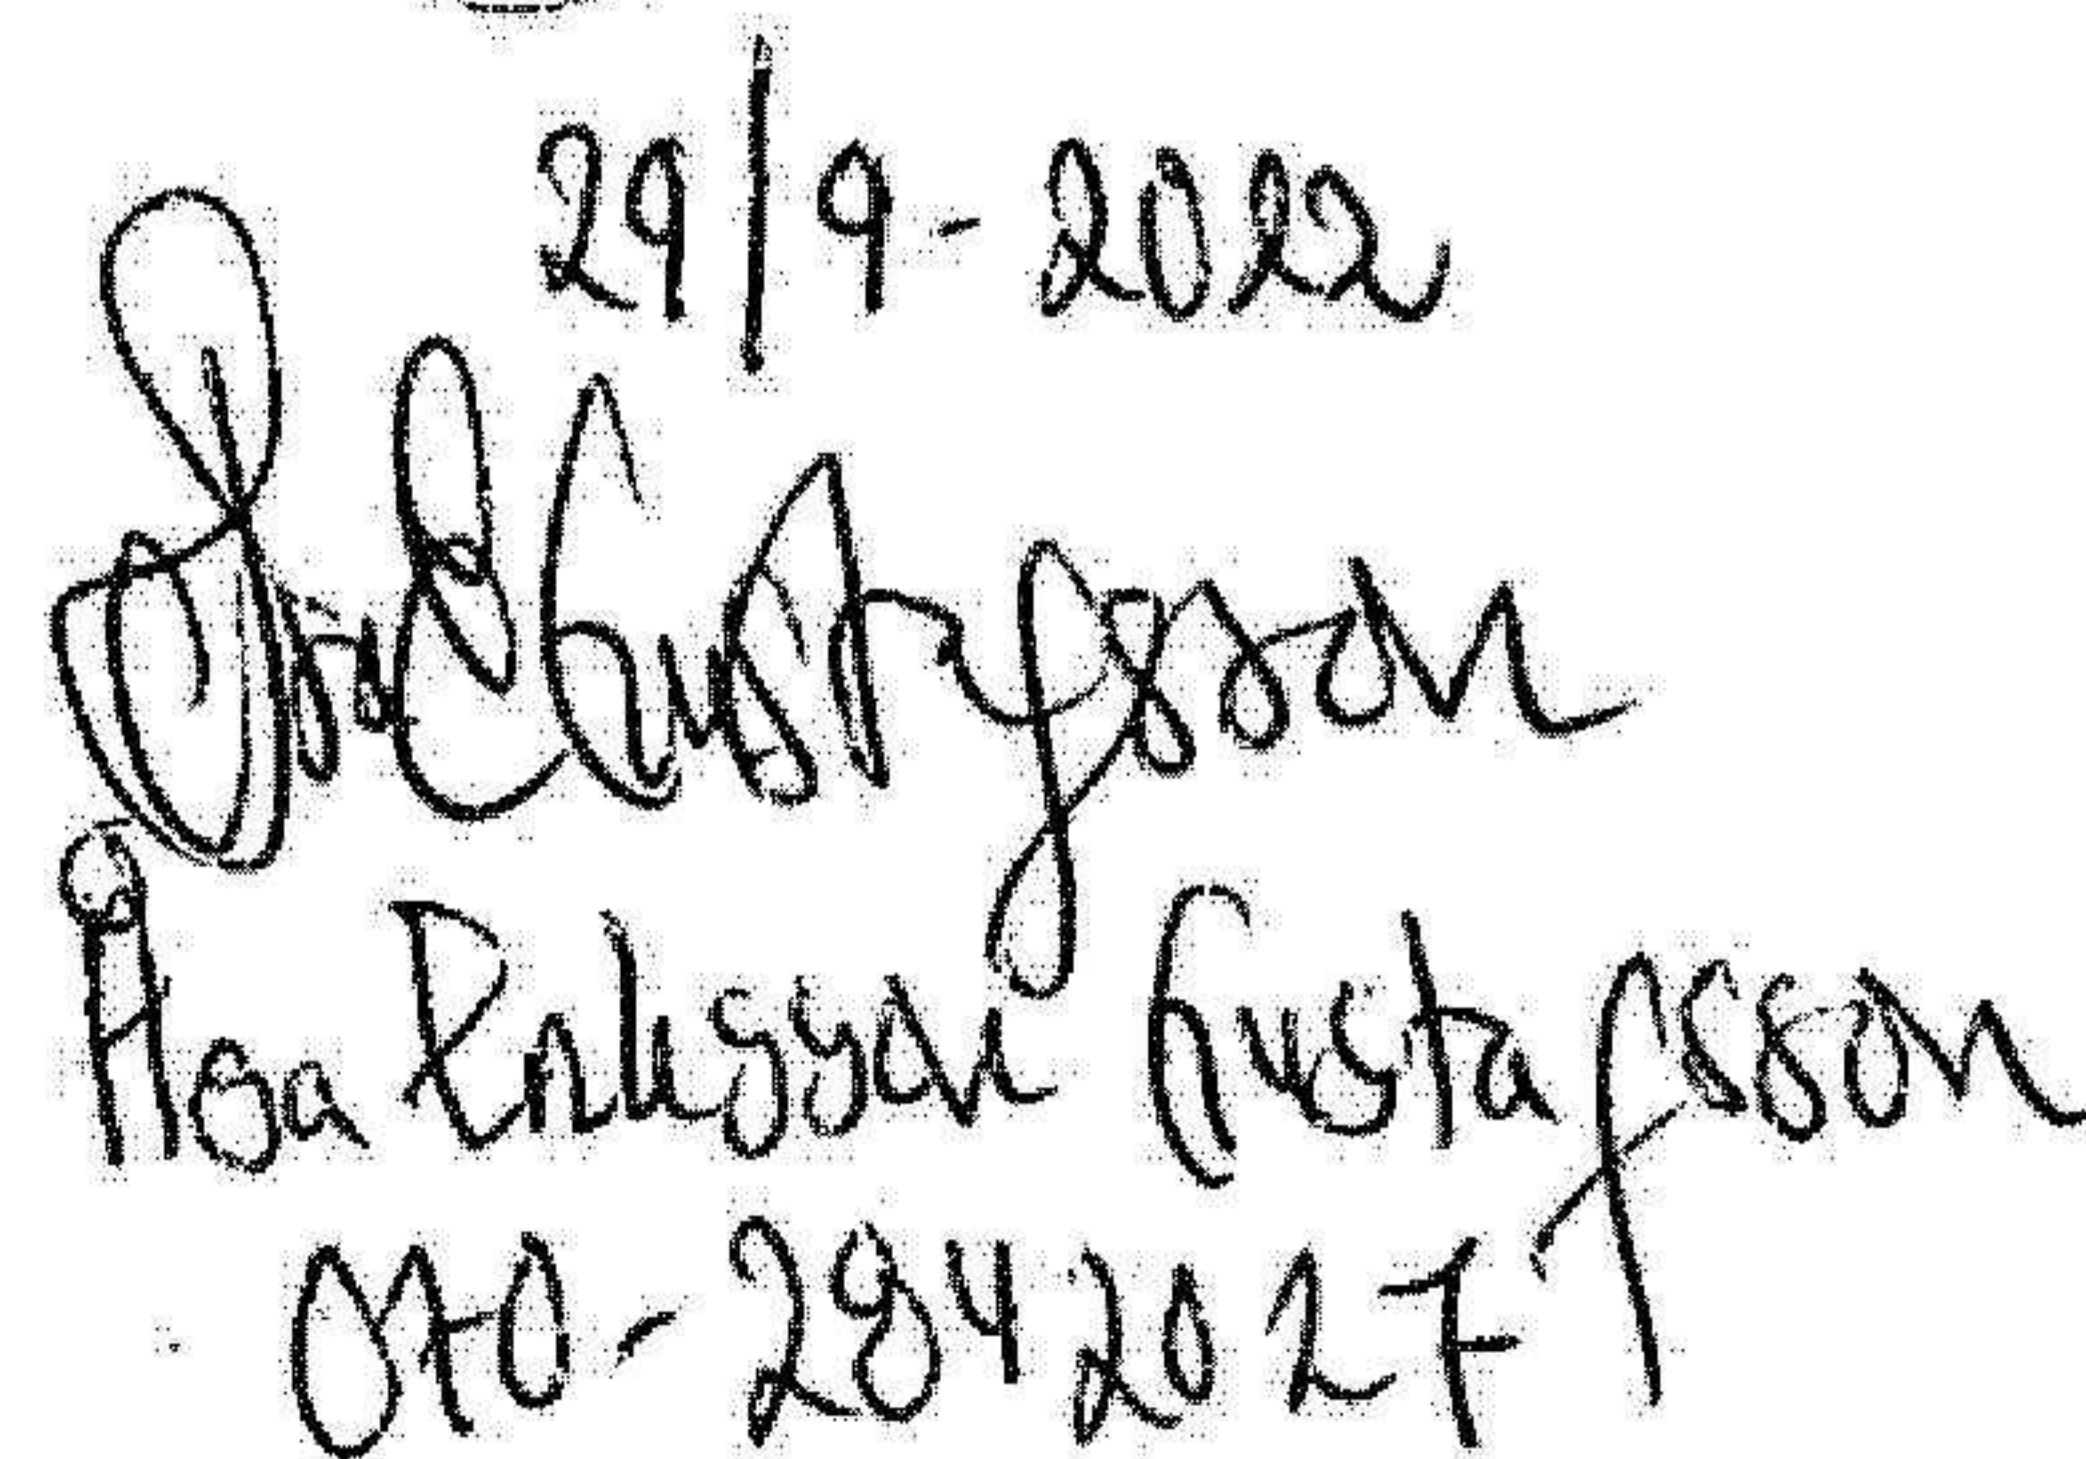 29/9-2022
Åsa E Gustafsson
Åsa Eriksson Gustafsson
070-2842027